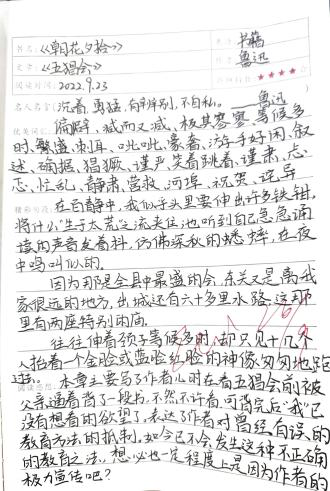 书名:《朝花夕拾》 类型: 书籍
文章:《五猖会》 作者: 鲁迅
阅读时间:2022.9.23 推荐指数:★★★★☆
名人名言 沉着、勇猛、有辨别,不自私。——鲁迅
优美词汇: 偏僻、减而又减、极其寥寥、等候多
时、繁盛、刺耳、叱叱、豪奢、游手好闲、叙
述、确据、猖獗、谨严、笑着跳着、谨肃、忐
忑、忙乱、静肃、营救、河埠、祝贺、诧异
精彩句段: 在百静中,我似乎头里要伸出许多铁钳,
将什么“生于太荒”之流夹住;也听到自己急急诵
读的声音发着抖,仿佛深秋的蟋蟀,在夜
中鸣叫似的。
因为那是全县中最盛的会,东关又是离我
家很远的地方,出城还有六十多里水路,在那
里有两座特别的庙。
往往伸着颈子等候多时,却只见十几个
人抬着一个金脸或蓝脸红脸的神像匆匆地跑
过去。
阅读感想: 本章主要写了作者儿时在看五猖会前被
父亲逼着背了一段书,不然不许看,可背完后“我”已
没有想看的欲望了,表达了作者对曾经有误的
教育方法的抵制,如今已不会发生这种不正确
的教育之法,想必也一定程度上是因为作者的
极力宣传吧?